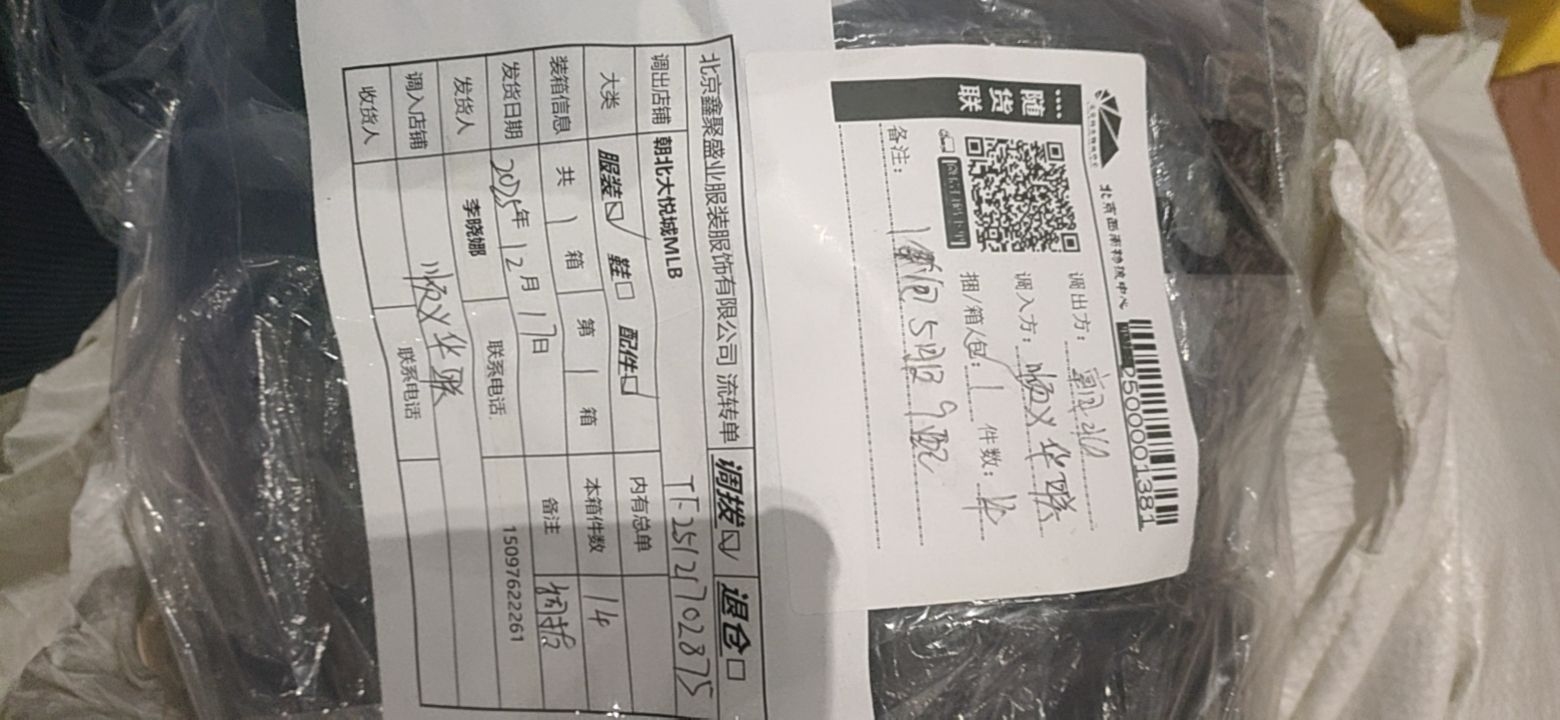 北京鑫聚盛业服装服饰有限公司 流转单 调拨☑ 退仓□
调出店铺 朝北大悦城MLB TF2512702875
大类 服装☑ 鞋□ 配件☑ 内有总单
装箱信息 共 1 箱 第 1 箱 本箱件数 14
发货日期 2025年12月17日 备注
发货人 李晓娜 联系电话 15097622261
调入店铺 顺义华联
收货人 联系电话
随货联
调出方：
调入方：顺义华联
捆/箱/包：1 件数：14
备注：